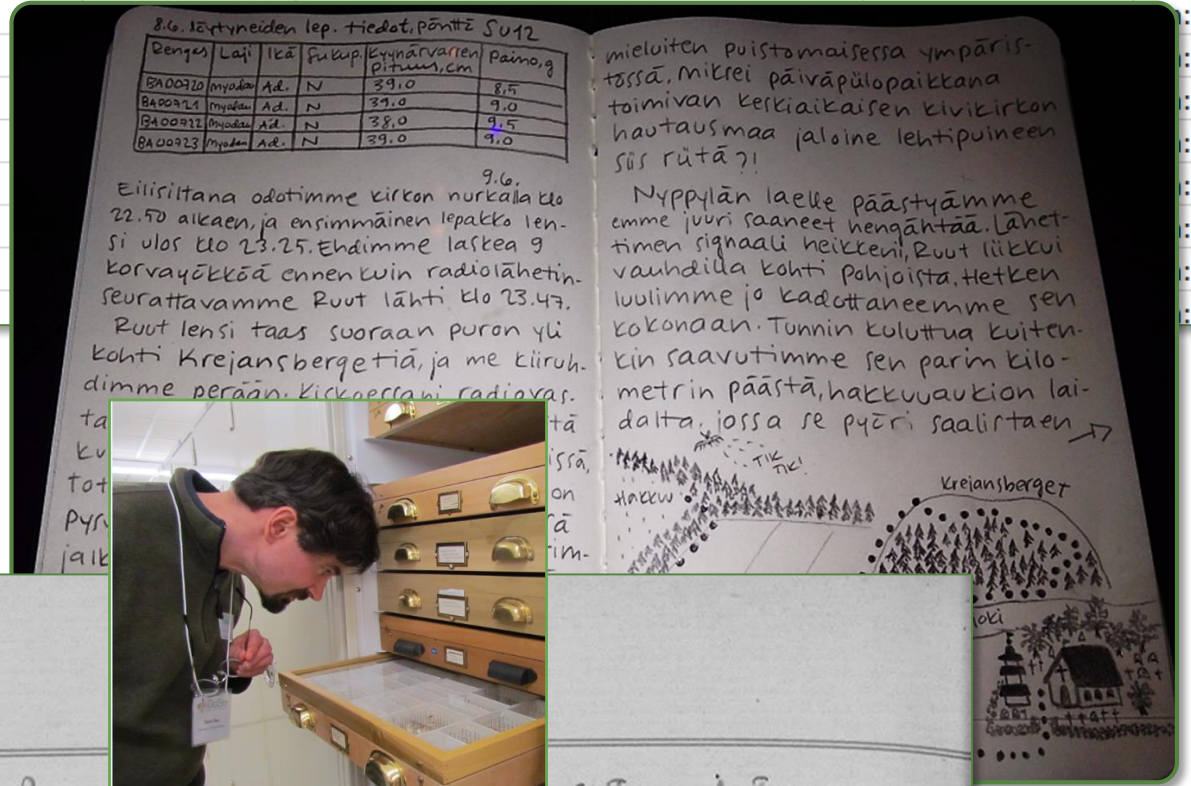 8.6. löytyneiden lep. tiedot, pönttö SU12
Rengas Laji Ikä Sukup. Kyynärvarren pituus, cm Paino, g
BA00720 Myodau Ad. N 39,0 8,5
BA00721 Myodau Ad. N 39,0 9,0
BA00722 Myodau Ad. N 38,0 9,5
BA00723 Myodau Ad. N 39,0 9,0
9.6.
Eilisiltana odotimme kirkon nurkalla klo
22.50 alkaen, ja ensimmäinen lepakko len-
si ulos klo 23.25. Ehdimme laskea 9
korvayökköä ennen kuin radiolähetin-
seurattavamme Ruut lähti klo 23.47.
Ruut lensi taas suoraan puron yli
kohti Krejansbergetiä, ja me kiiruh-
dimme perään. Kiskoessani radiovas-
ta
tä
ku
issä,
tot
on
pys
rä
jalk
im-
mieluiten puistomaisessa ympäris-
tössä. Miksei päiväpiilopaikkana
toimivan keskiaikaisen kivikirkon
hautausmaa jaloine lehtipuineen
siis riitä?!
Nyppylän laelle päästyämme
emme juuri saaneet hengähtää. Lähet-
timen signaali heikkeni, Ruut liikkui
vauhdilla kohti pohjoista. Hetken
luulimme jo kadottaneemme sen
kokonaan. Tunnin kuluttua kuiten-
kin saavutimme sen parin kilo-
metrin päästä, hakkuuaukion lai-
dalta, jossa se pyöri saalistaen
TIK
TIK!
Hakkuu
Krejansberget
joki